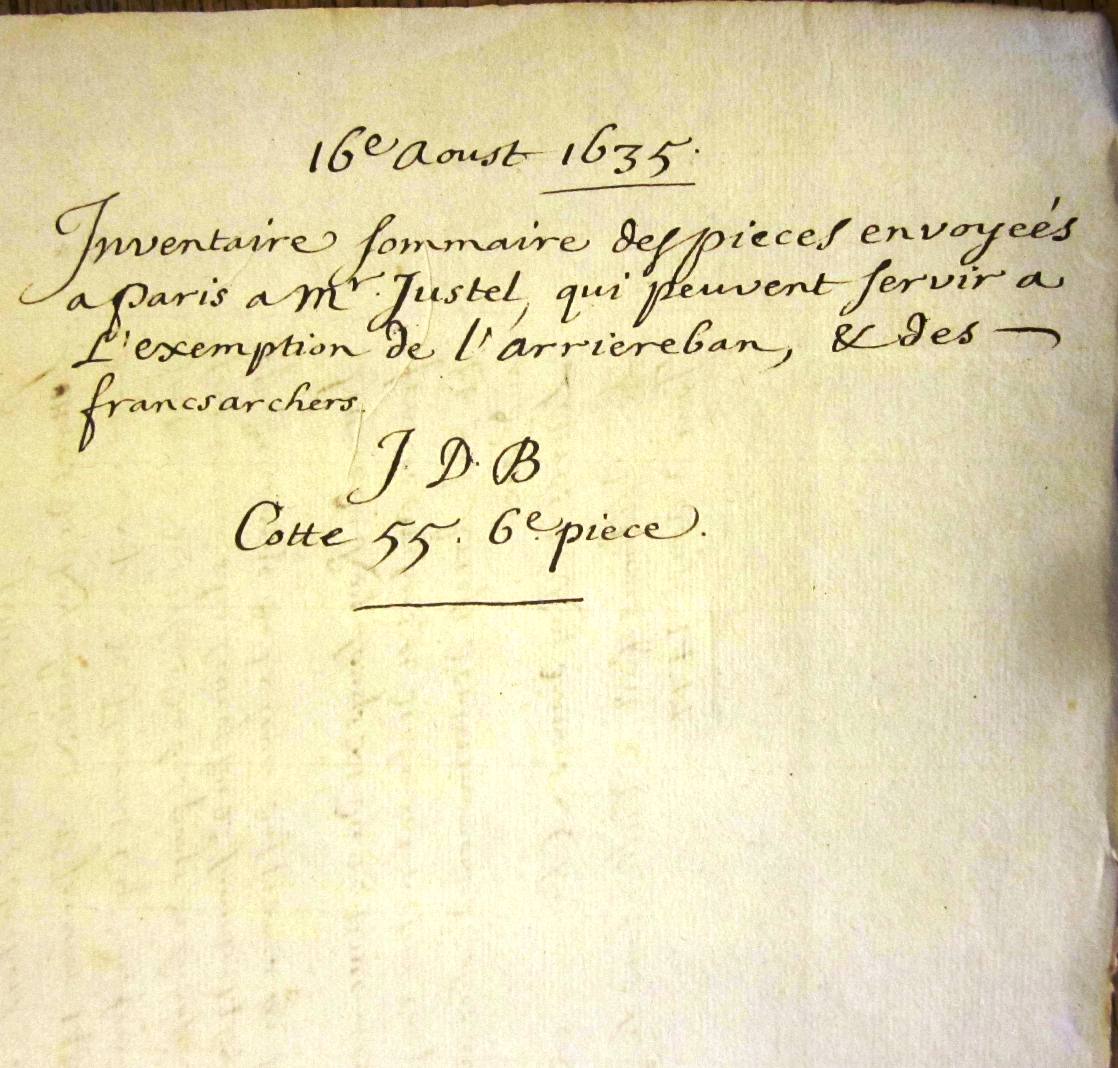 16e Aoust 1635.
Inventaire sommaire des pieces envoyeés
a Paris a Mr. Justel, qui peuvent servir a
L'exemption de l'arriereban, & des —
francsarchers.
J D. B
Cotte 55. 6e. piece.